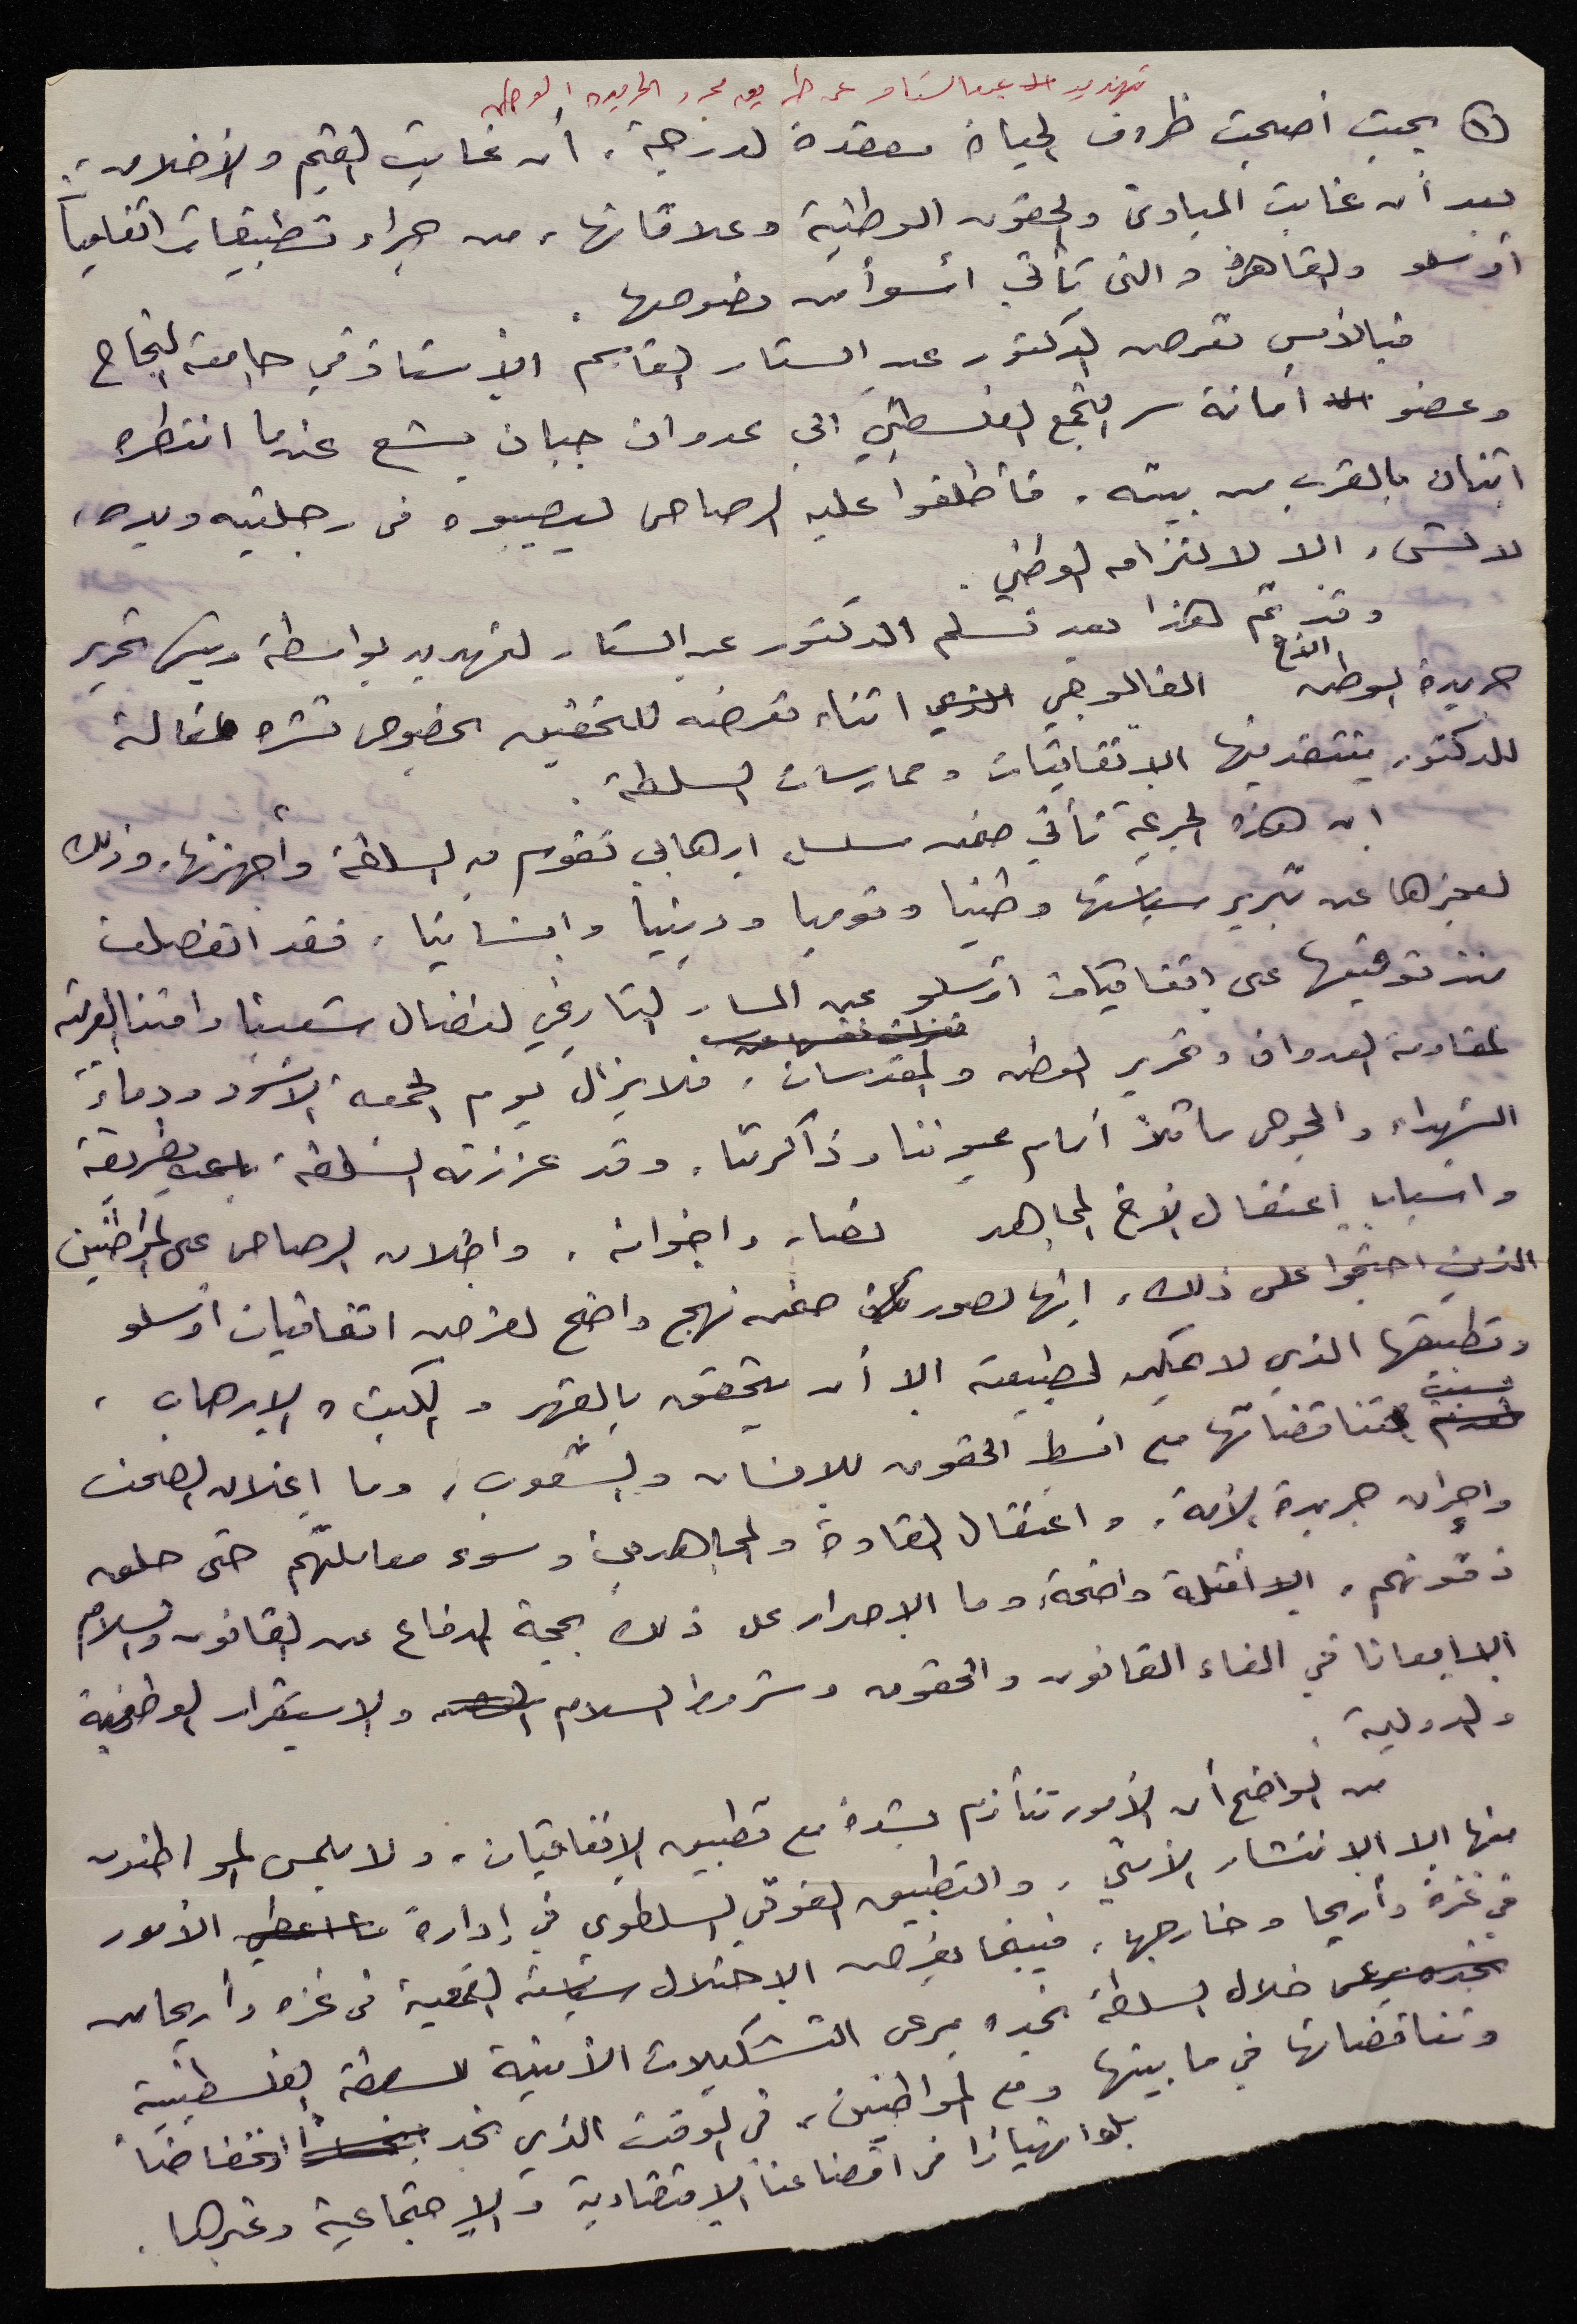 تهديد عبد الستار عن طريق محرر الجريدة الوطن
① بحيث أصبحت ظروف الحياة معقدة لدرجة، أن غابت القيم والأخلاق،
بعد أن غابت المبادئ والحقوق الوطنية وعلاقاتها، من جراء تطبيقات اتفاقيات
أوسلو والقاهرة والتي تأتي اسوأ من نصوصها.
فبالأمس تعرض الدكتور عبد الستار القاسم الأستاذ في جامعة النجاح
وعضو أمانة سر التجمع الفلسطيني الى عدوان جبان بشع عندما انتظره
اثنان بالقرب من بيته، فأطلقوا عليه الرصاص ليصيبوه في رجليه ويده،
لا لشيء الا لالتزامه الوطني.
وقد تم هذا بعد تسلم الدكتور عبد الستار لتهديد بواسطة رئيس تحرير
جريدة الوطن الأخ الفالوجي الذي اثناء تعرضه للتحقيق بخصوص نشره مقالة
للدكتور ينتقد فيها الاتفاقيات وممارسات السلطة.
ان هذه الجريمة تأتي ضمن مسلسل ارهابي تقوم به السلطة وأجهزتها، وذلك
لعجزها عن تبرير سياستها وطنيا وقوميا ودينياً وانسانيا، فقد انفصلت
منذ توقيعها على اتفاقيات اوسلو عن المسار التاريخي لنضال شعبنا وامتنا العربية
لمقاومة العدوان وتحرير الوطن والمقدسات، فلا يزال يوم الجمعة الاسود ودماء
الشهداء والجرحى ماثلاً أمام عيوننا وذاكرتنا، وقد عززته السلطة بطريقة
واسباب اعتقال الأخ المجاهد نصار واخوانه، واطلاق الرصاص على المواطنين
الذين احتجوا على ذلك، انها لصور ضمن نهج واضح لفرض اتفاقيات اوسلو
وتطبيقها الذي لا يمكن لطبيعته الا أن يتحقق بالقهر والكبت والارهاب،
بسبب تناقضاتها مع ابسط الحقوق للانسان والشعوب، وما إغلاق الصحف
وإحراق جريدة الأمة، واعتقال القادة والمجاهدين وسوء معاملتهم حتى حلق
ذقونهم، الا أمثلة واضحة، وما الاصرار على ذلك بحجة الدفاع عن القانون والسلام
الا إمعانا في الغاء القانون والحقوق وشروط السلام والاستقرار الوطنية
والدولية.
من الواضح أن الأمور تتأزم بشدة مع تطبيق الاتفاقيات، ولا يلمس المواطنون
منها الا الانتشار الأمني، والتطبيق الفوقي السلطوي في إدارة الأمور
في غزة وأريحا وخارجها، فبينما يفرض الاحتلال سياسته القمعية في غزة وأريحا من
خلال السلطة نجده يرعى التشكيلات الأمنية للسلطة الفلسطينية
وتناقضاتها في ما بينها ومع المواطنين، في الوقت الذي نجد انخفاضاً
بل وانهيارا في اوضاعنا الاقتصادية والاجتماعية وغيرها.